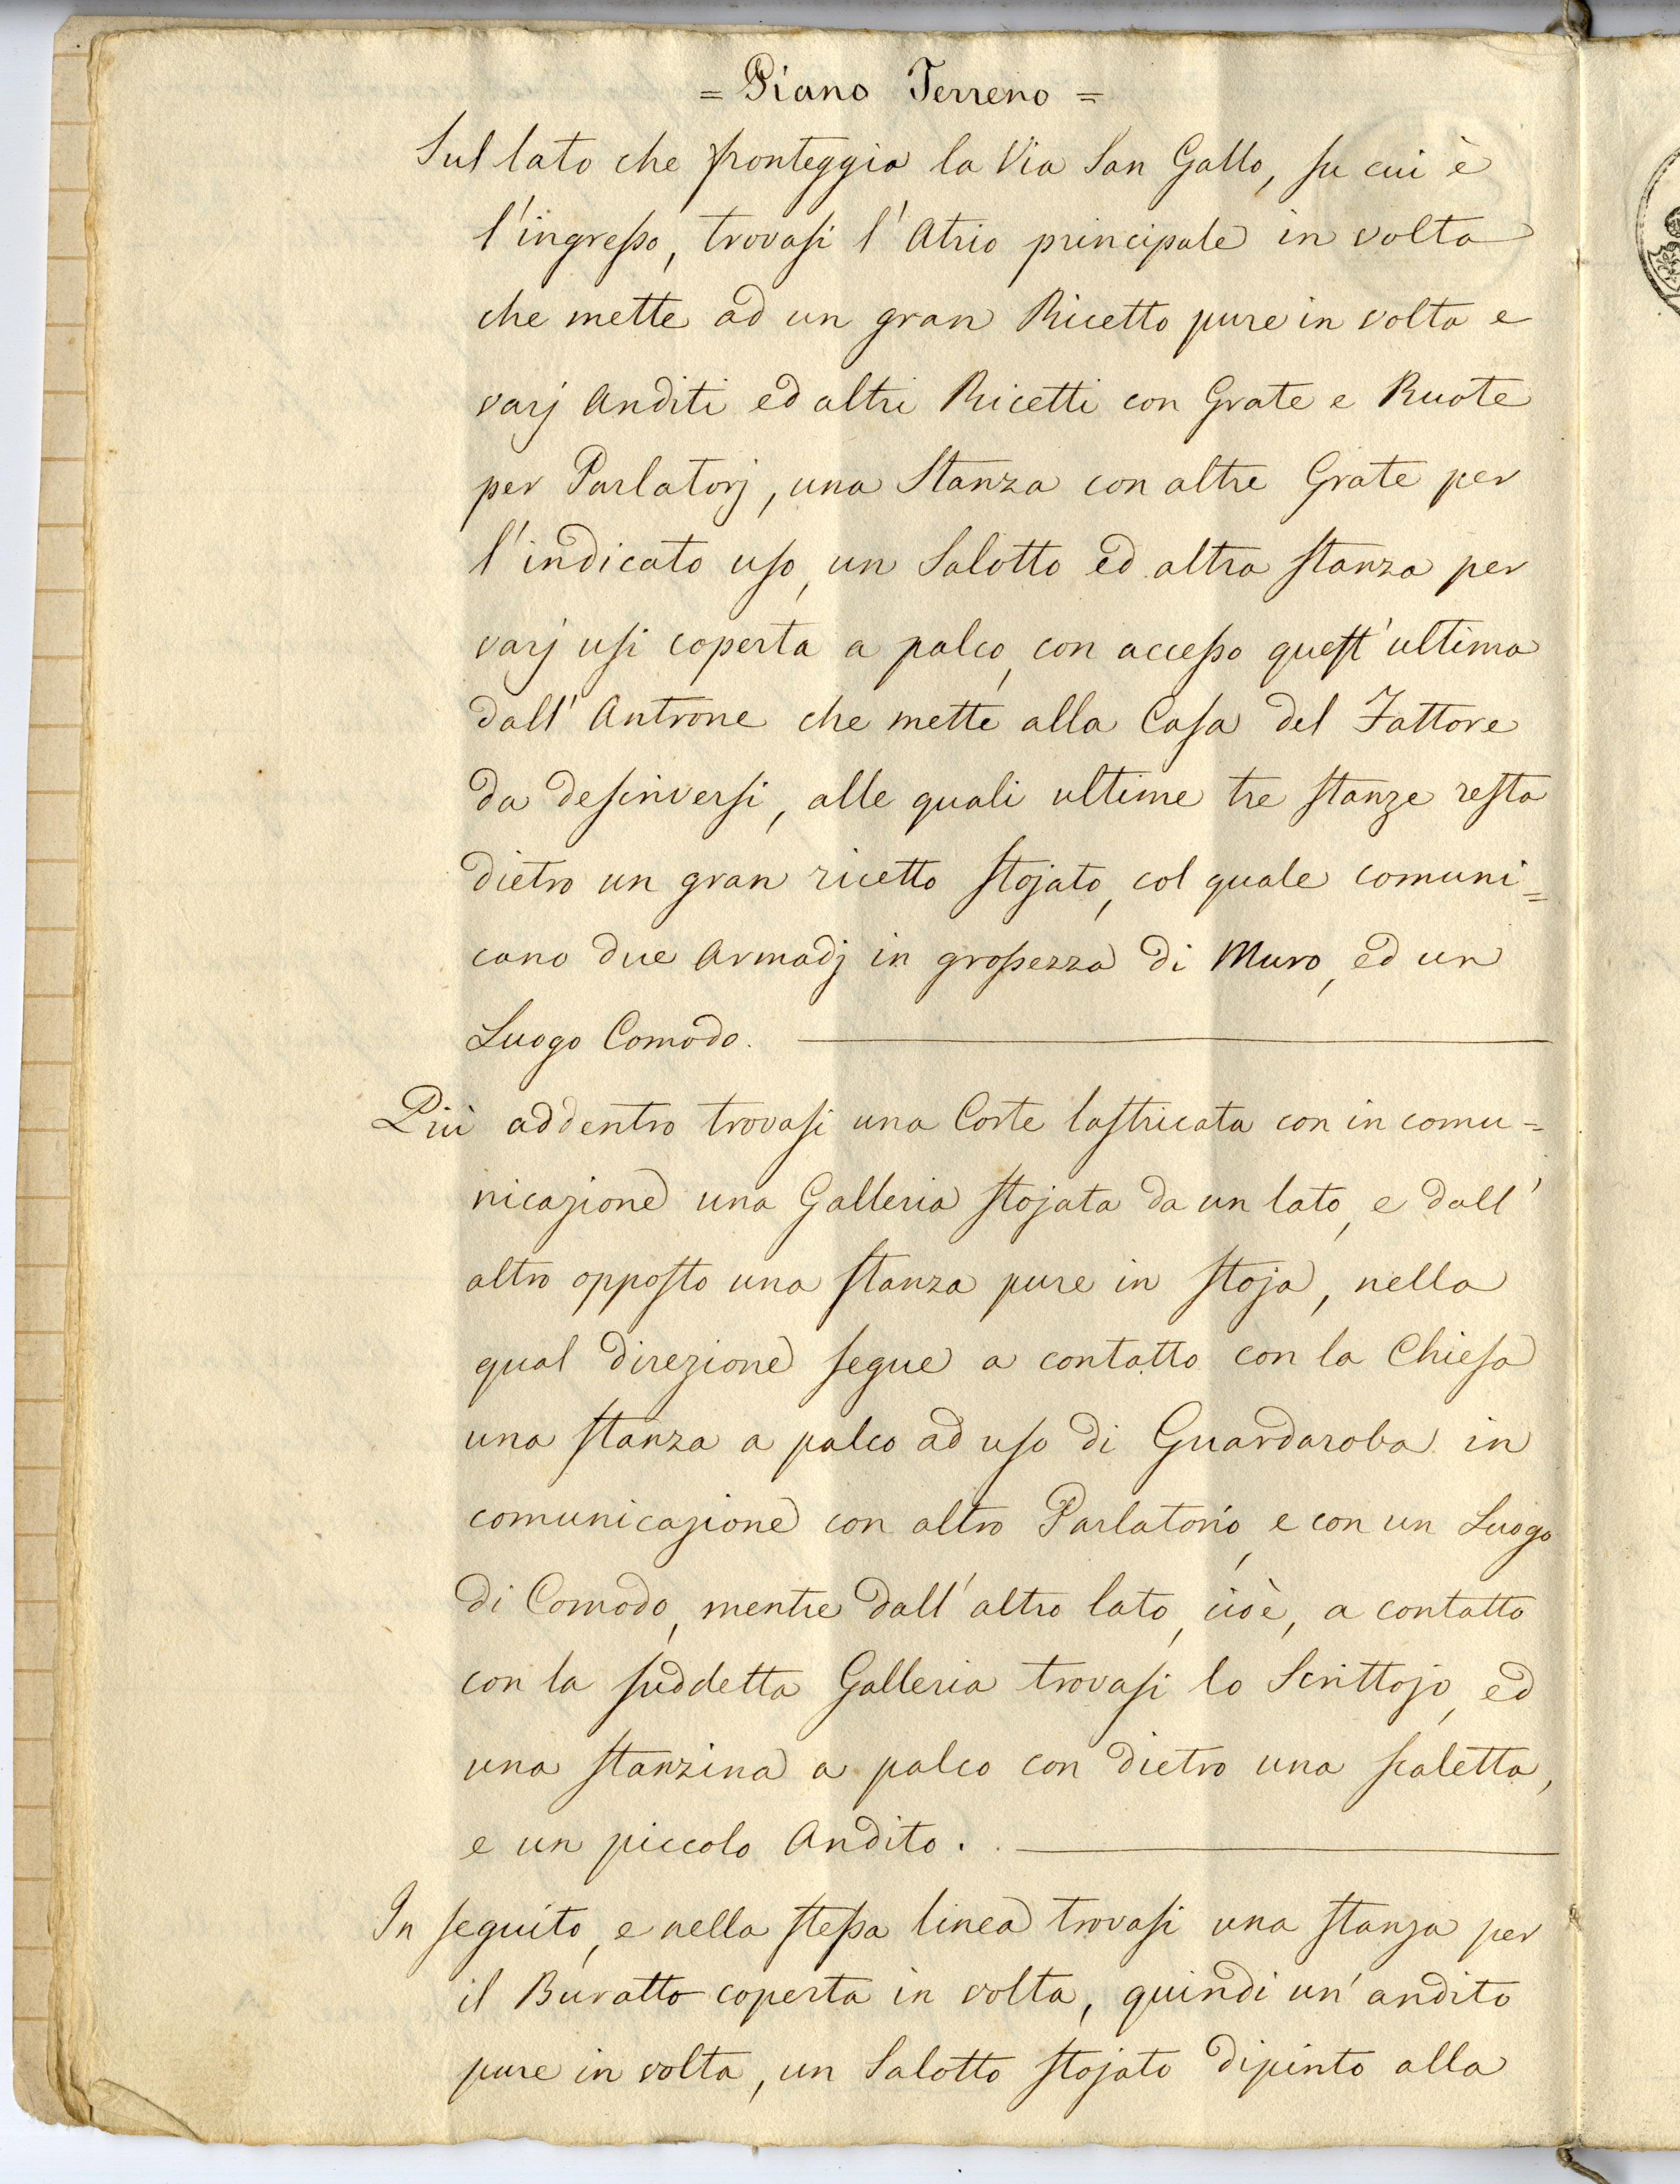 = Piano Terreno =
Sul lato che fronteggia la Via San Gallo, su cui è
l'ingresso, trovasi l'Atrio principale in volta
che mette ad un gran Ricetto pure in volta e
varj Anditi ed altri Ricetti con Grate e Ruote
per Parlatorj, una Stanza con altre Grate per
l'indicato uso, un Salotto ed altra stanza per
varj usi coperta a palco, con accesso quest'ultima
dall'Antrone che mette alla Casa del Fattore
da descriversi, alle quali ultime tre stanze resta
dietro un gran ricetto stojato, col quale comuni=
cano due Armadj in grossezza di Muro, ed un
Luogo Comodo.
Più addentro trovasi una Corte lastricata con in comu=
nicazione una Galleria stojata da un lato, e dall'
altro opposto una stanza pure in stoja, nella
qual direzione segue a contatto con la Chiesa
una stanza a palco ad uso di Guardaroba in
comunicazione con altro Parlatorio, e con un Luogo
di Comodo, mentre dall'altro lato, cioè, a contatto
con la suddetta Galleria trovasi lo Scrittojo, ed
una stanzina a palco con dietro una scaletta,
e un piccolo Andito.
In seguito, e nella stessa linea trovasi una stanza per
il Buratto coperta in volta, quindi un'andito
pure in volta, un Salotto stojato dipinto alla